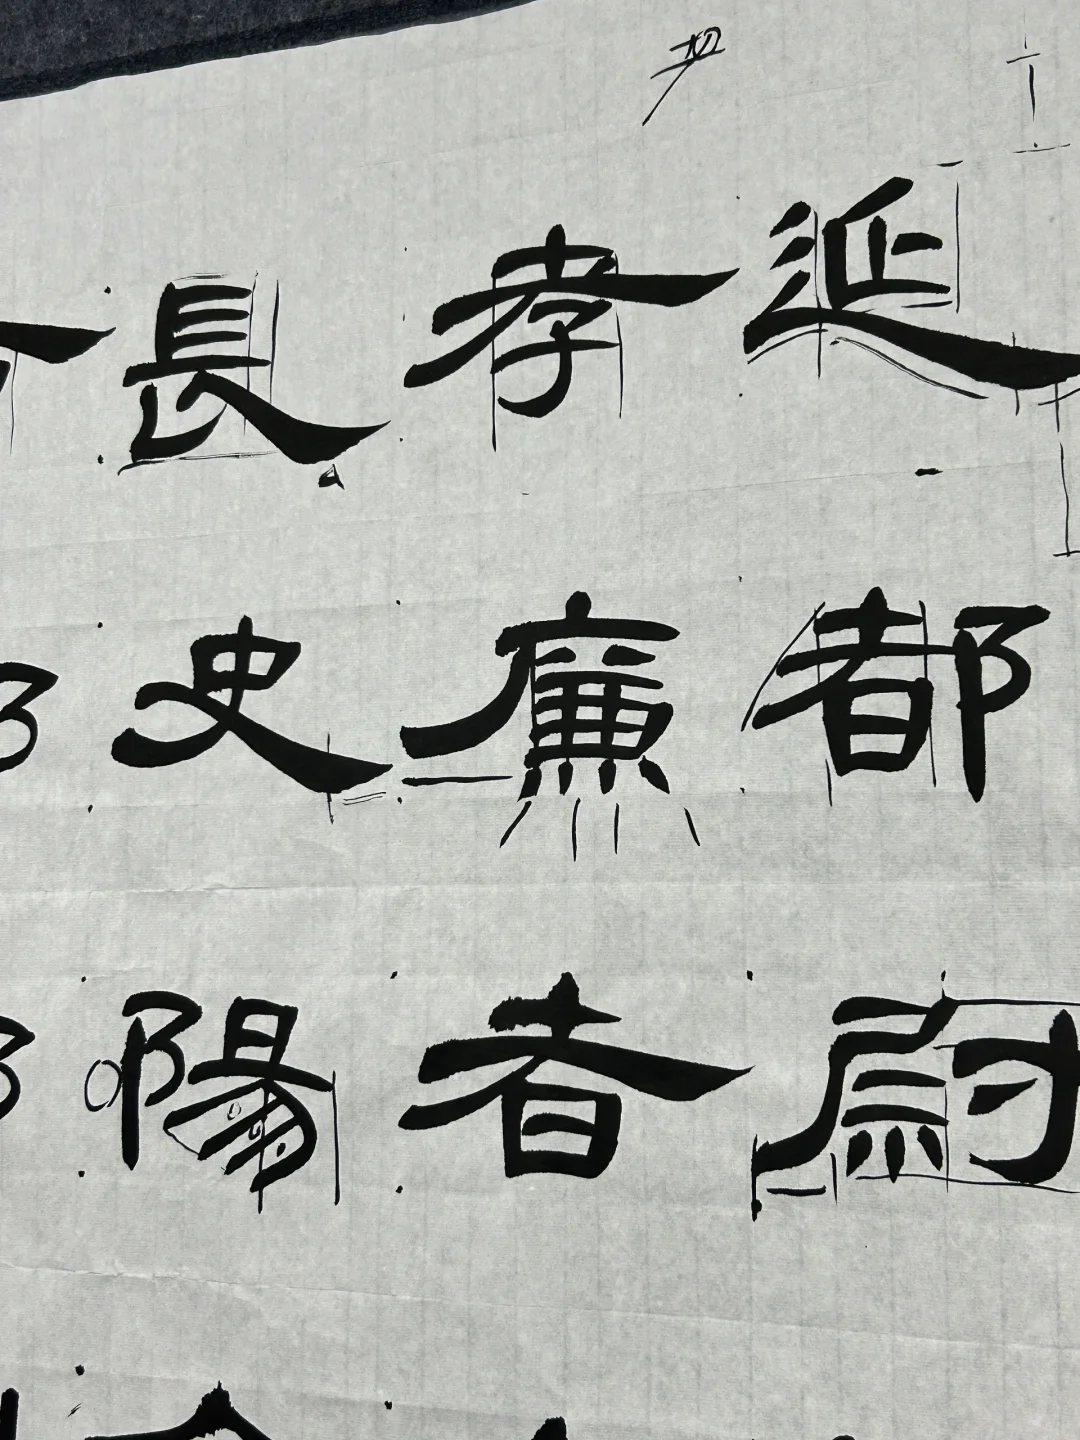 延都尉
孝廉者
長史陽